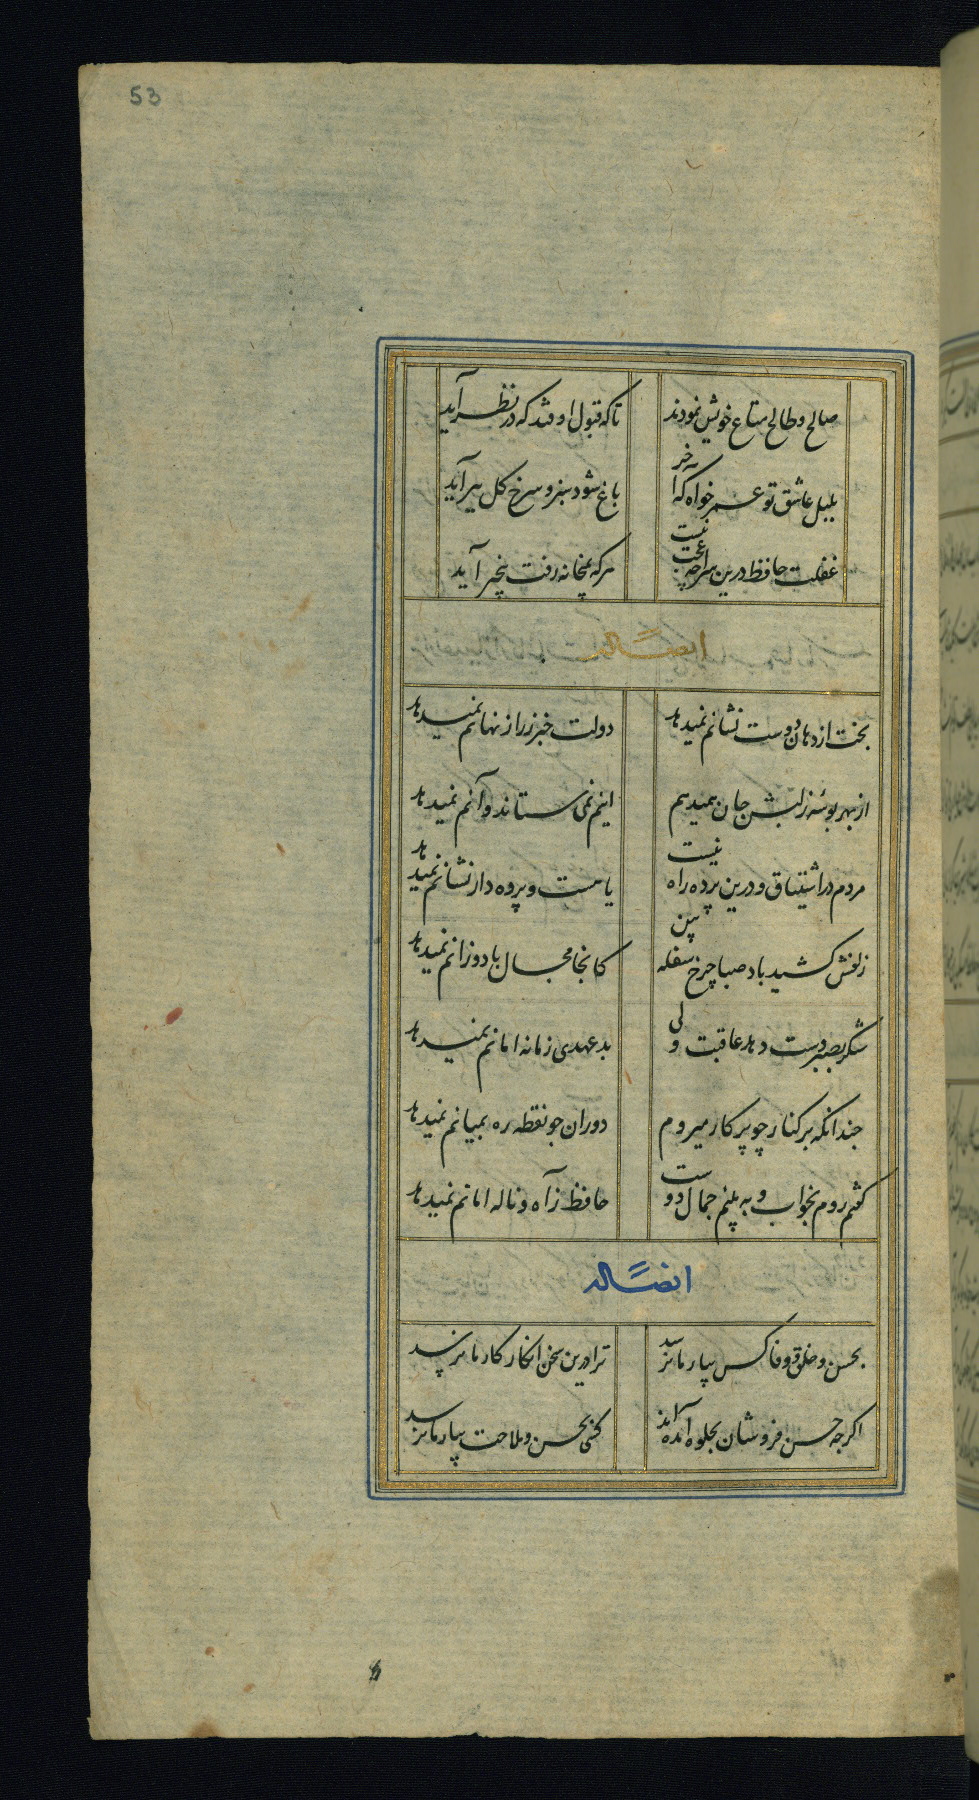 53
صالح و طالح متاع خویش نمودند تا که قبول اوفتد که در نظر آید
بلبل عاشق تو عمر خواه که آخر باغ شود سبز و سرخ گل ببر آید
غفلت حافظ درین سراچه عجب نیست هرکه بمیخانه رفت بیخبر آید
ایضاً له
بخت از دهان دوست نشانم نمیدهد دولت خبر ز راز نهانم نمیدهد
از بهر بوسهٔ ز لبش جان همیدهم اینم نمی ستاند و آنم نمیدهد
مردم در اشتیاق و درین پرده راه نیست یا هست و پرده دار نشانم نمیدهد
زلفش کشید باد صبا چرخ سفله بین کانجا مجال باد وزانم نمیدهد
شکر بصبر دست دهد عاقبت ولی بد عهدی زمانه امانم نمیدهد
چندانکه بر کنار چو پرکار میروم دوران چو نقطه ره بمیانم نمیدهد
گفتم روم بخواب و به بینم جمال دوست حافظ ز آه و ناله امانم نمیدهد
ایضاً له
بحسن و خلق و وفا کس بیار ما نرسد ترا درین سخن انکار کار ما نرسد
اگرچه حسن فروشان بجلوه آمده اند کسی بحسن و ملاحت بیار ما نرسد